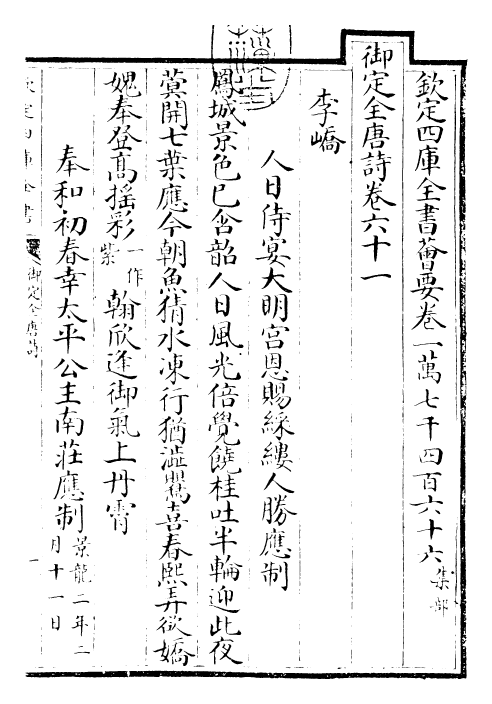 欽定四庫全書薈要卷一萬七千四百六十六集部
御定全唐詩卷六十一
李嶠
人日侍宴大明宫恩賜綵縷人勝應制
鳳城景色已含韶人日風光倍覺饒桂吐半輪迎此夜
蓂開七葉應今朝魚猜水凍行猶澁鸎喜春熙弄欲嬌
媿奉登髙摇彩一作紫翰欣逢御氣上丹霄
奉和初春幸太平公主南莊應制景龍二年二月十一日
欽定四庫全書 御定全唐詩 一